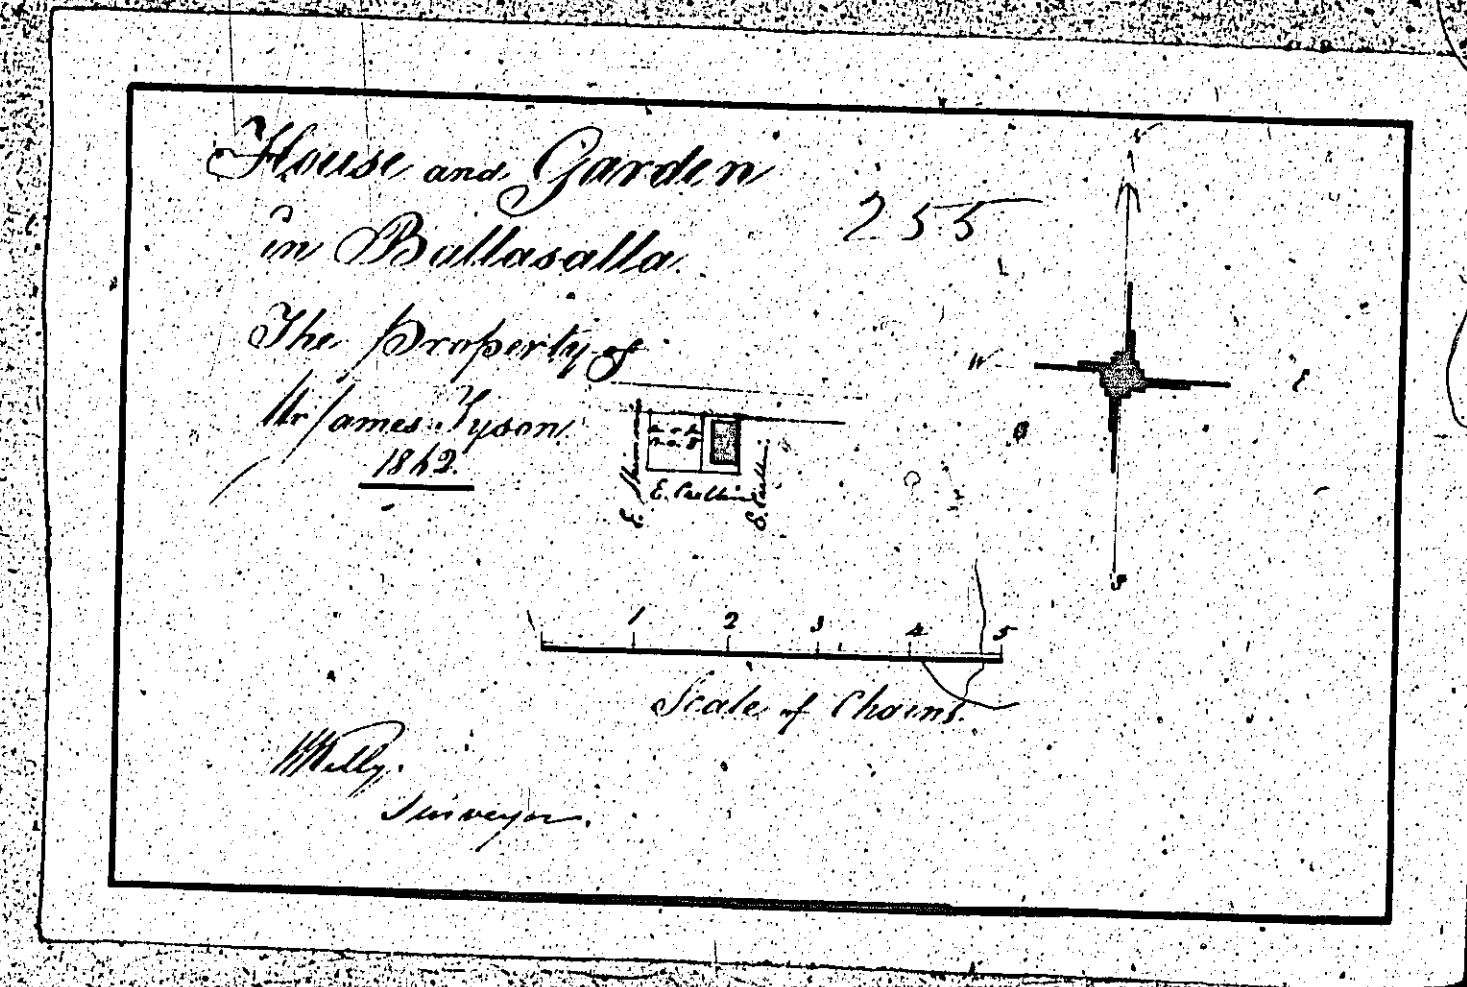 House and Garden
255
in Ballasalla.
The Property of
Mr James Tyson.
1862.
N
W
E
S
A R P
0. 0. 8
E.
E. Cubbin
E. Cubbin
1 2 3 4 5
Scale of Chains.
W Kelly.
Surveyor.